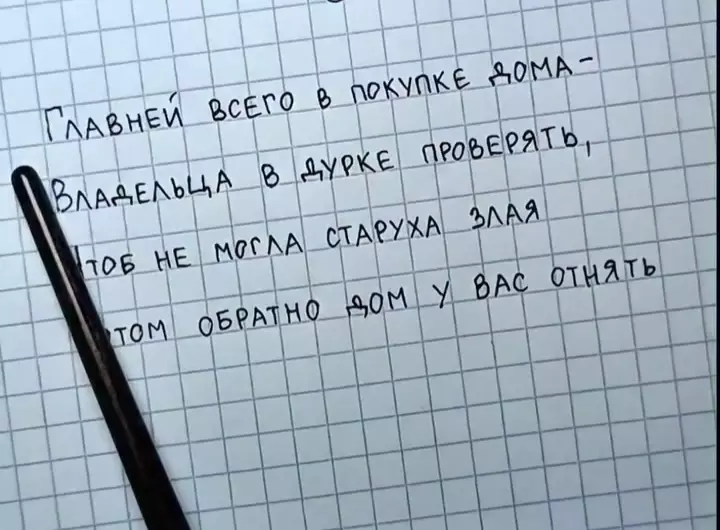 Главней всего в покупке дома-
Владельца в дурке проверять,
Чтоб не могла старуха злая
Потом обратно дом у вас отнять